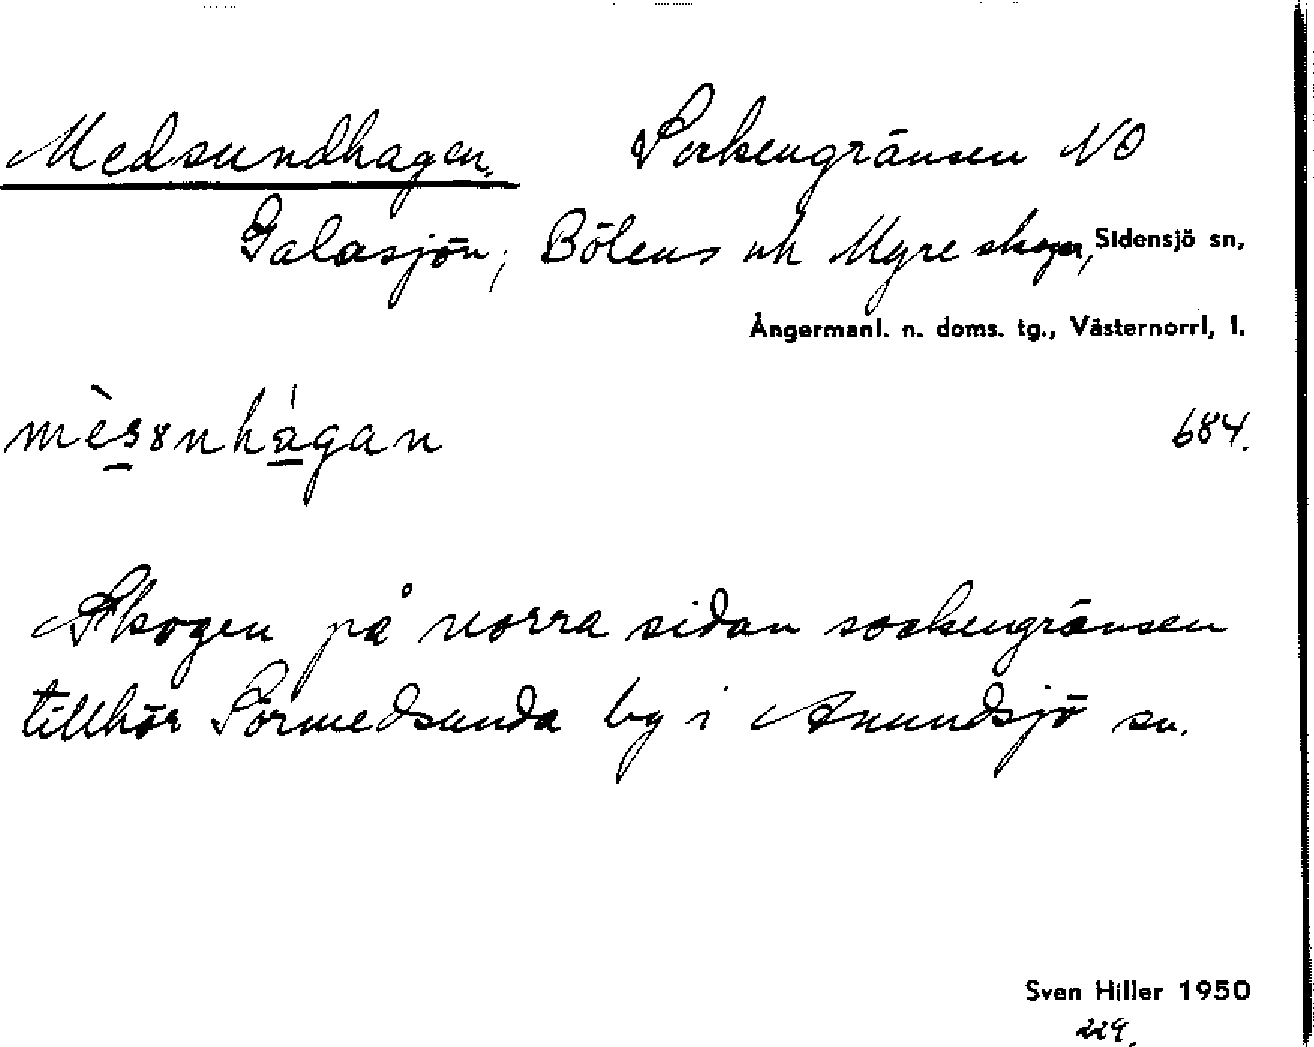 Medsundhagen, Sockengränsen NO
Galasjön, Bölens och Myre skogar, Sidensjö sn,
Ångermanl. n. doms. tg., Västernorrl, l.
684.
Skogen på norra sidan sockengränsen
tillhör Sörmedsunda by i Anundsjö sn.
Sven Hiller 1950
229.